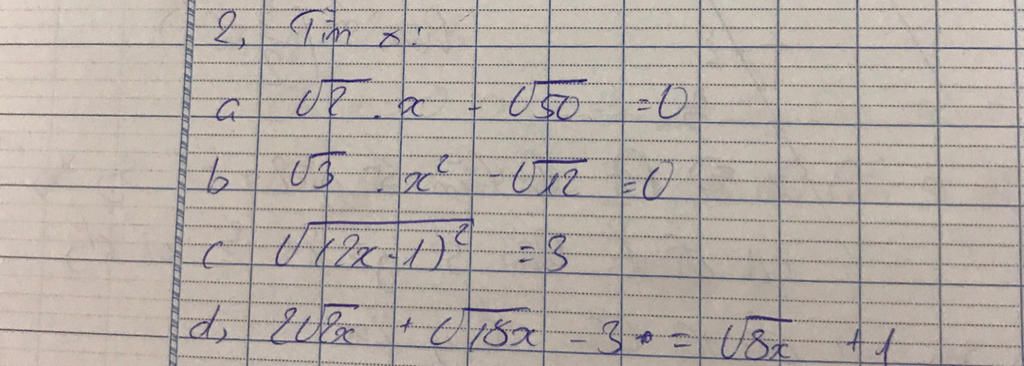 2, Tìm x:
a √2 . x - √50 = 0
b √3 . x² - √12 = 0
c √(2x-1)² = 3
d, 2√2x + √18x - 3 = √8x + 1